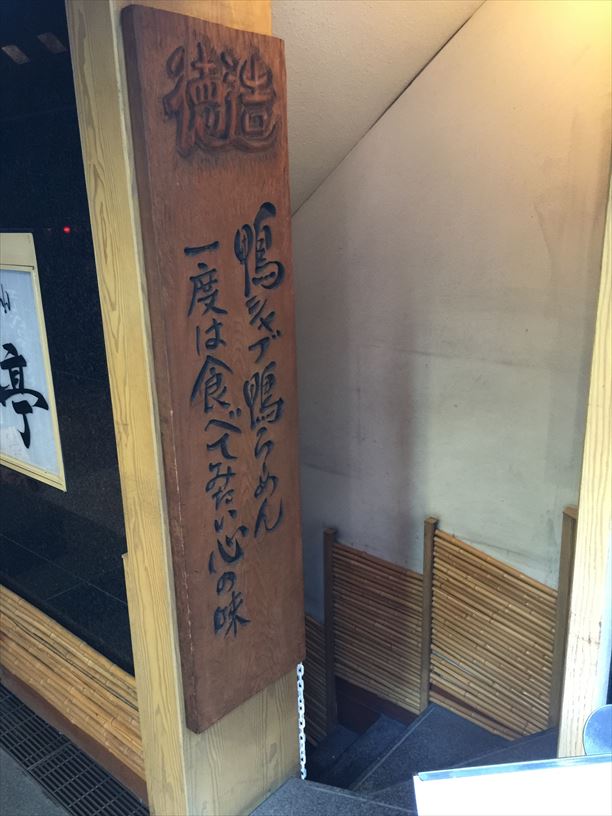 徳造
鴨シャブ鴨らめん
一度は食べてみたい心の味
亭